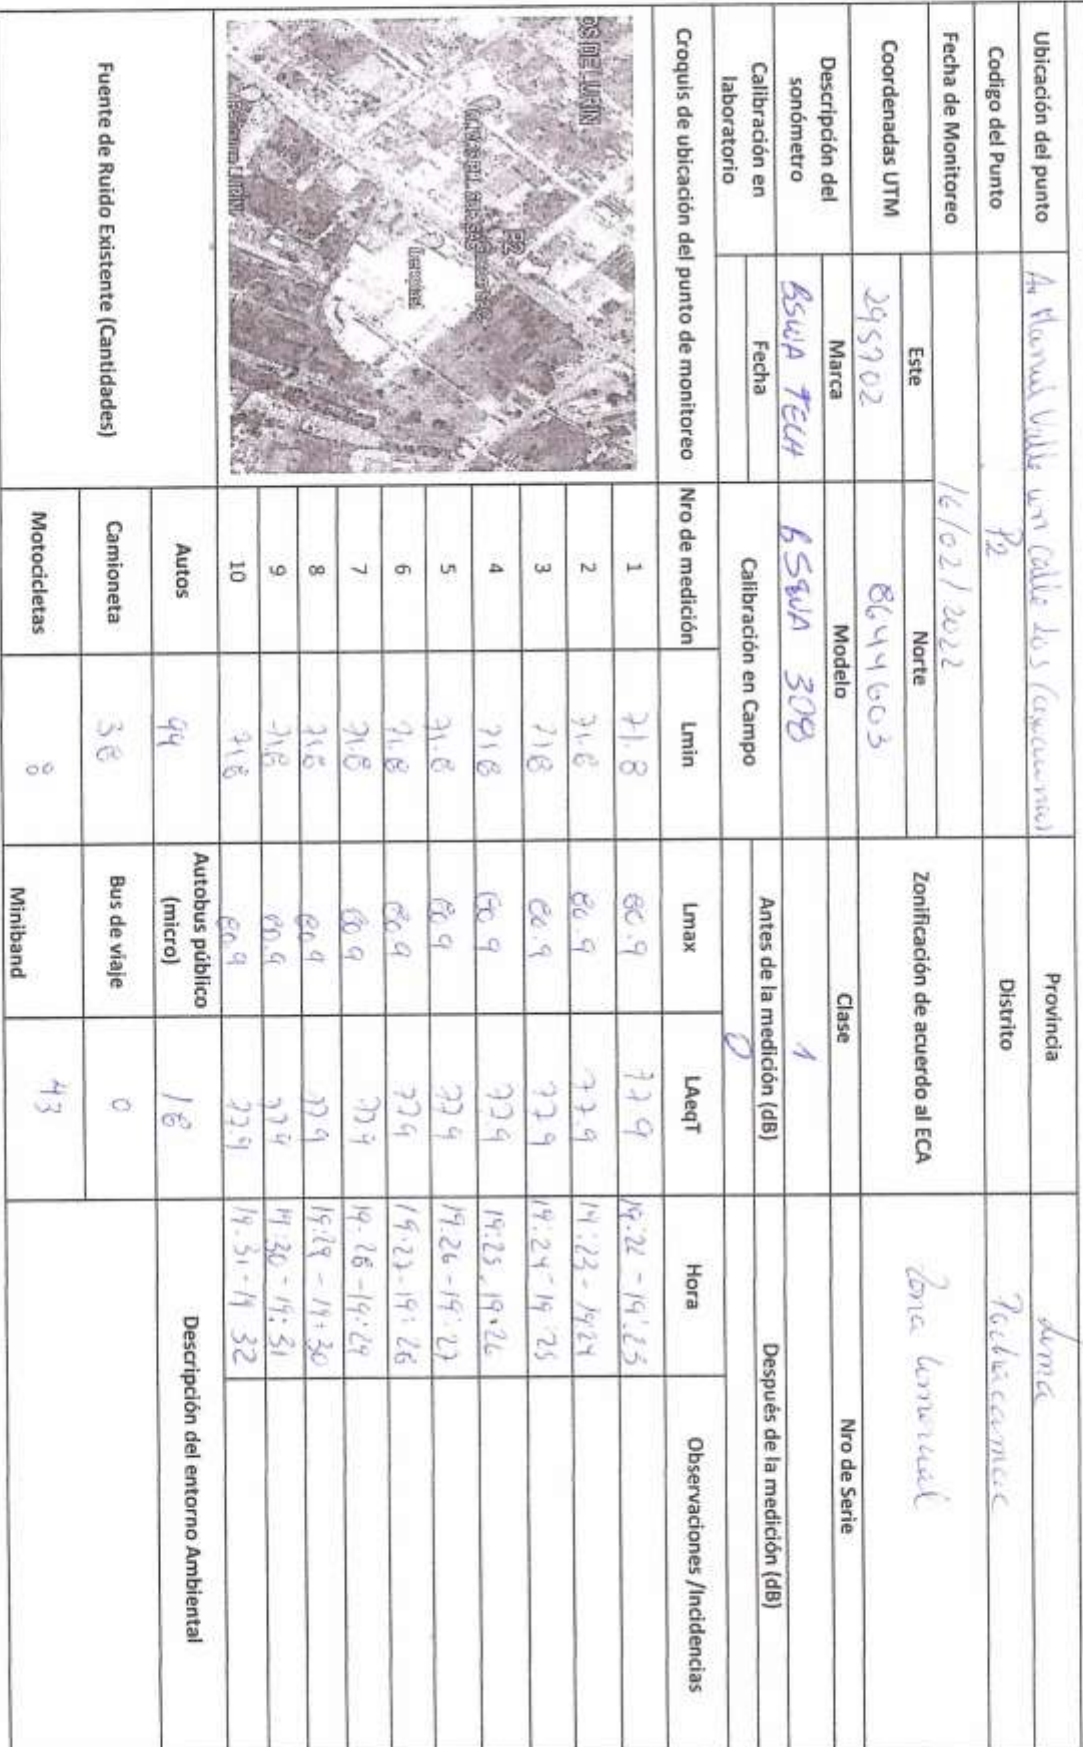 Ubicación del punto Av Manuel Valle con calle los Provincia Lima
Codigo del Punto P2 Distrito Pachacamac
Fecha de Monitoreo 16/02/2022
Coordenadas UTM Este Norte Zonificación de acuerdo al ECA Zona Comercial
295702 8644603
Descripción del sonómetro Marca Modelo Clase Nro de Serie
BSWA TECH BSWA 308 1
Calibración en laboratorio Fecha Calibración en Campo Antes de la medición (dB) Después de la medición (dB)
0
Croquis de ubicación del punto de monitoreo Nro de medición Lmin Lmax LAeqT Hora Observaciones /Incidencias
OS DE LURIN
P2
1 71.8 80.9 77.9 19:22 - 19:23
2 71.8 80.9 77.9 19:23 - 19:24
3 71.8 80.9 77.9 19:24 - 19:25
4 71.8 80.9 77.9 19:25 - 19:26
5 71.8 80.9 77.9 19:26 - 19:27
6 71.8 80.9 77.9 19:27 - 19:28
7 71.8 80.9 77.9 19:28 - 19:29
8 71.8 80.9 77.9 19:29 - 19:30
9 71.8 80.9 77.9 19:30 - 19:31
10 71.8 80.9 77.9 19:31 - 19:32
Fuente de Ruido Existente (Cantidades) Autos 94 Autobus público (micro) 18 Descripción del entorno Ambiental
Camioneta 38 Bus de viaje 0
Motocicletas 8 Miniband 43